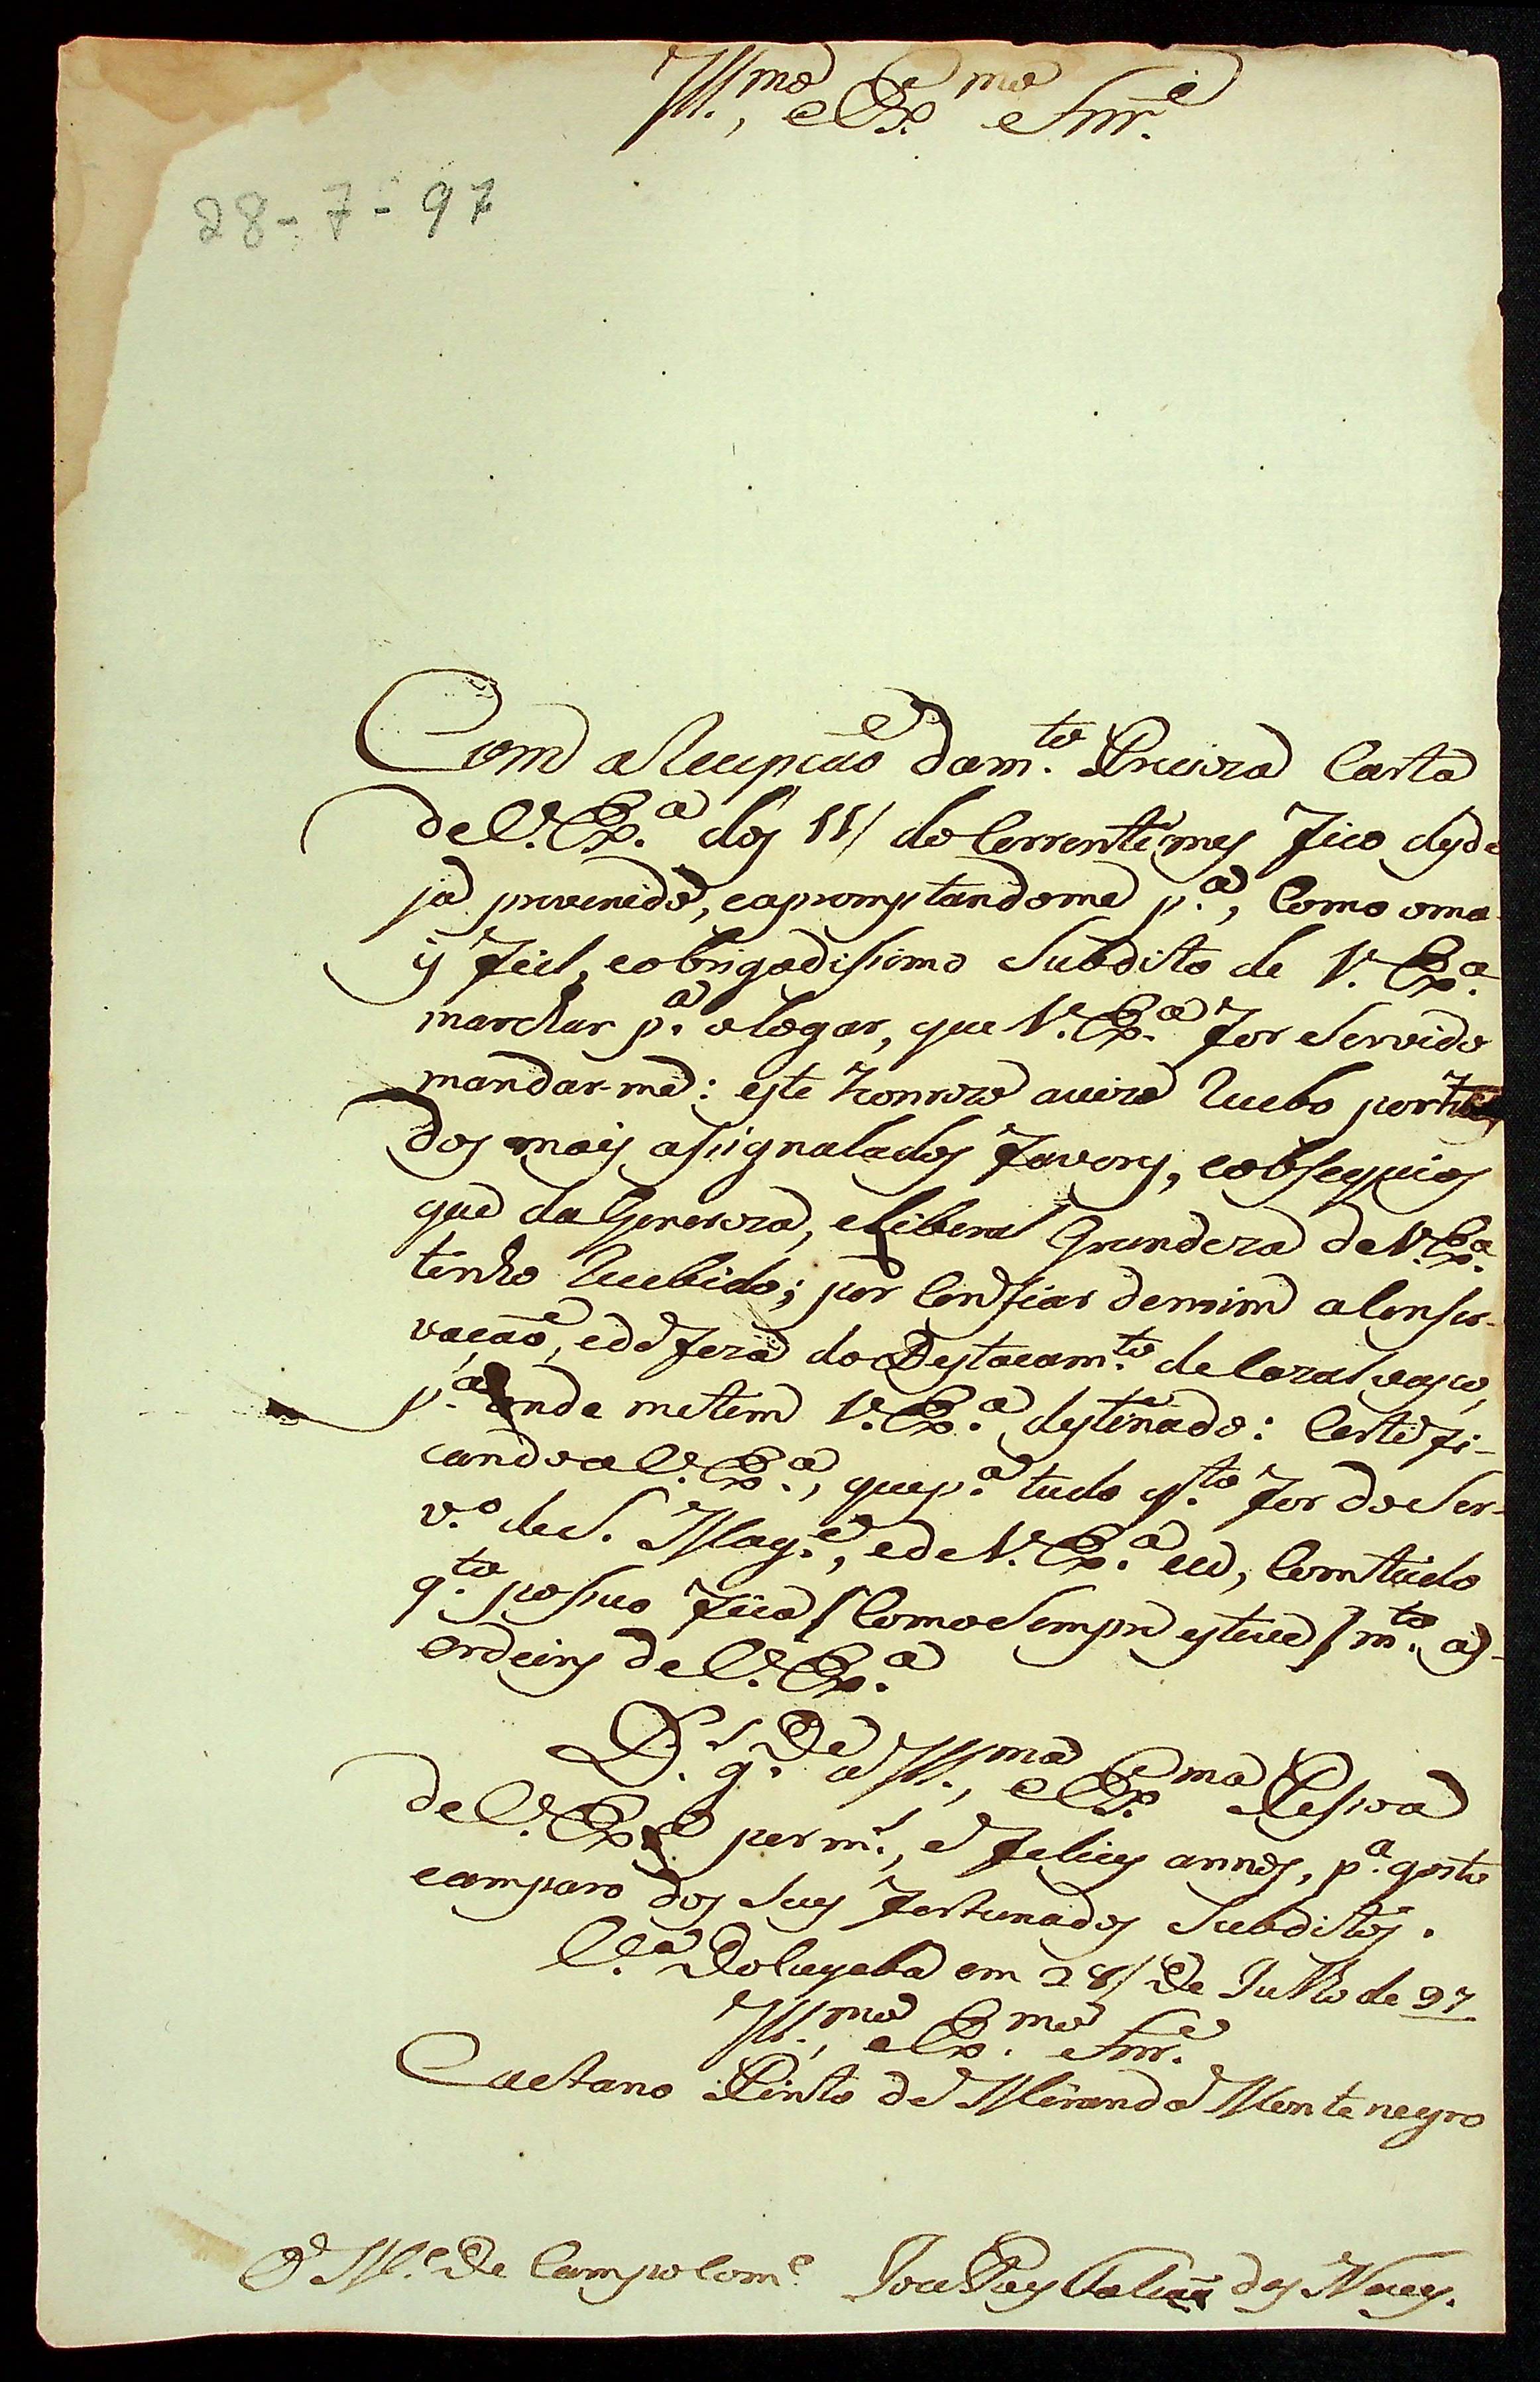 Ill.mo, e Ex.mo Snr.e
28-7-97
Com a Recepção da m.to Precioza Carta
de V. Ex.a dos 11/ do Corrente mes fico desde
ja prevenido, e apromptandome p.a, Como o ma-
is fiel, e obrigadissimo Subdito de V. Ex.a
marchar p.a o logar, que V. Ex.a for Servido
mandar-me: este honrozo avizo Recebo por
dos mais assignalados favores, e obsequios
que da Generoza, e Liberal Grandeza de V. Ex.a
tenho Recebido; por Confiar de mim a Conser-
vação, e defeza do Destacam.to de Cazalvasco,
p.a onde me tem V. Ex.a destinado: Certefi-
cando a V. Ex.a, que p.a tudo q.to for do Ser-
v.o de S. Mag.e, e de V. Ex.a eu, Com tudo
q.to possuo fica [Como Sempre esteve] m.to as
ordeins de V. Ex.a
D.s g.de a Ill.ma, e Ex.ma Pessoa
de V. Ex.a por m.s, e felices annos, p.a gosto
e amparo dos Seus fortunados Subditos.
V.a de Cuyaba em 28/ de Julho de 97
Ill.mo, e Ex.mo Snr.e
Caetano Pinto de Miranda Montenegro
O M.e de Campo Com.e Joze Paes Falcão das Neves.